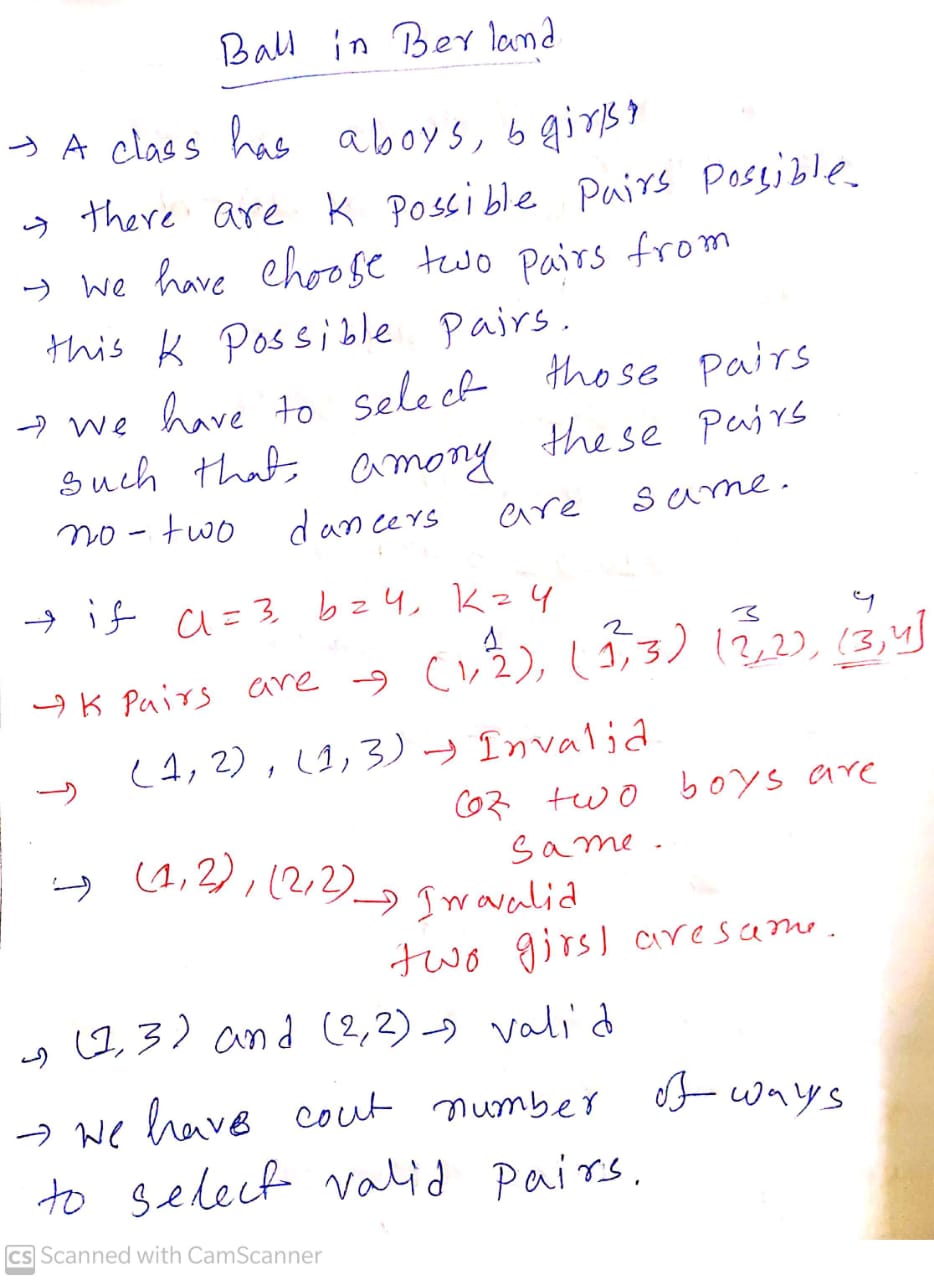 Ball in Berland
→ A class has a boys, b girls,
→ there are K Possible Pairs Possible.
→ we have choose two pairs from
this K Possible Pairs.
→ we have to select those Pairs
such that, among these Pairs
no-two dancers are same.
→ if a=3, b=4, K=4
1 2 3 4
→ K Pairs are → (1,2), (1,3) (2,2), (3,4)
→ (1,2), (1,3) → Invalid
coz two boys are
same.
→ (1,2), (2,2) → Invalid
two girsl are same.
→ (1,3) and (2,2) → valid
→ we have cout number of ways
to select valid Pairs.
CS Scanned with CamScanner